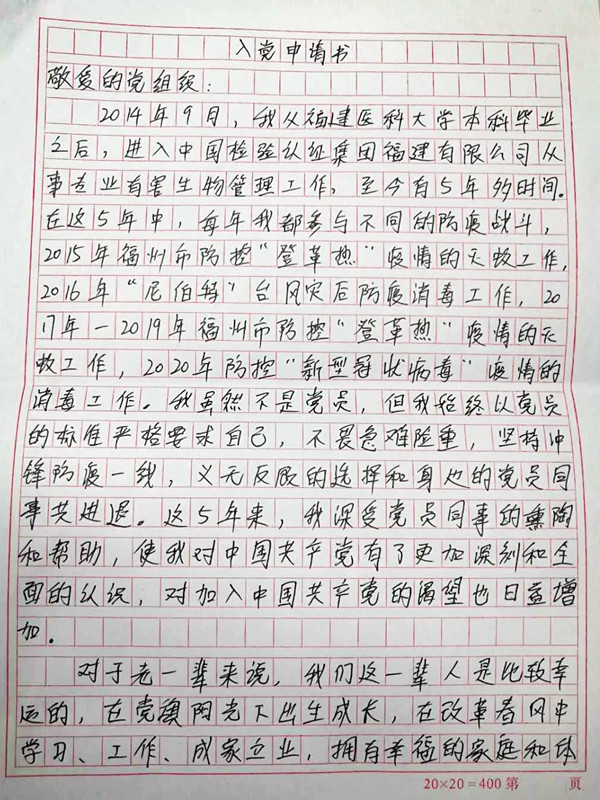 入党申请书
敬爱的党组织:
2014年9月,我从福建医科大学本科毕业
之后,进入中国检验认证集团福建有限公司从
事专业有害生物管理工作,至今有5年多时间。
在这5年中,每年我都参与不同的防疫战斗,
2015年福州市防控“登革热”疫情的灭蚊工作,
2016年“尼伯特”台风灾后防疫消毒工作,20
17年—2019年福州市防控“登革热”疫情的灭
蚊工作,2020年防控“新型冠状病毒”疫情的
消毒工作。我虽然不是党员,但我始终以党员
的标准严格要求自己,不畏急难险重,坚持冲
锋防疫一线,义无反顾的选择和身边的党员同
事共进退。这5年来,我深受党员同事的熏陶
和帮助,使我对中国共产党有了更加深刻和全
面的认识,对加入中国共产党的渴望也日益增
加.
对于老一辈来说,我们这一辈人是比较幸
运的,在党旗阳光下出生成长,在改革春风中
学习、工作、成家立业,拥有幸福的家庭和体
20×20=400 第 页